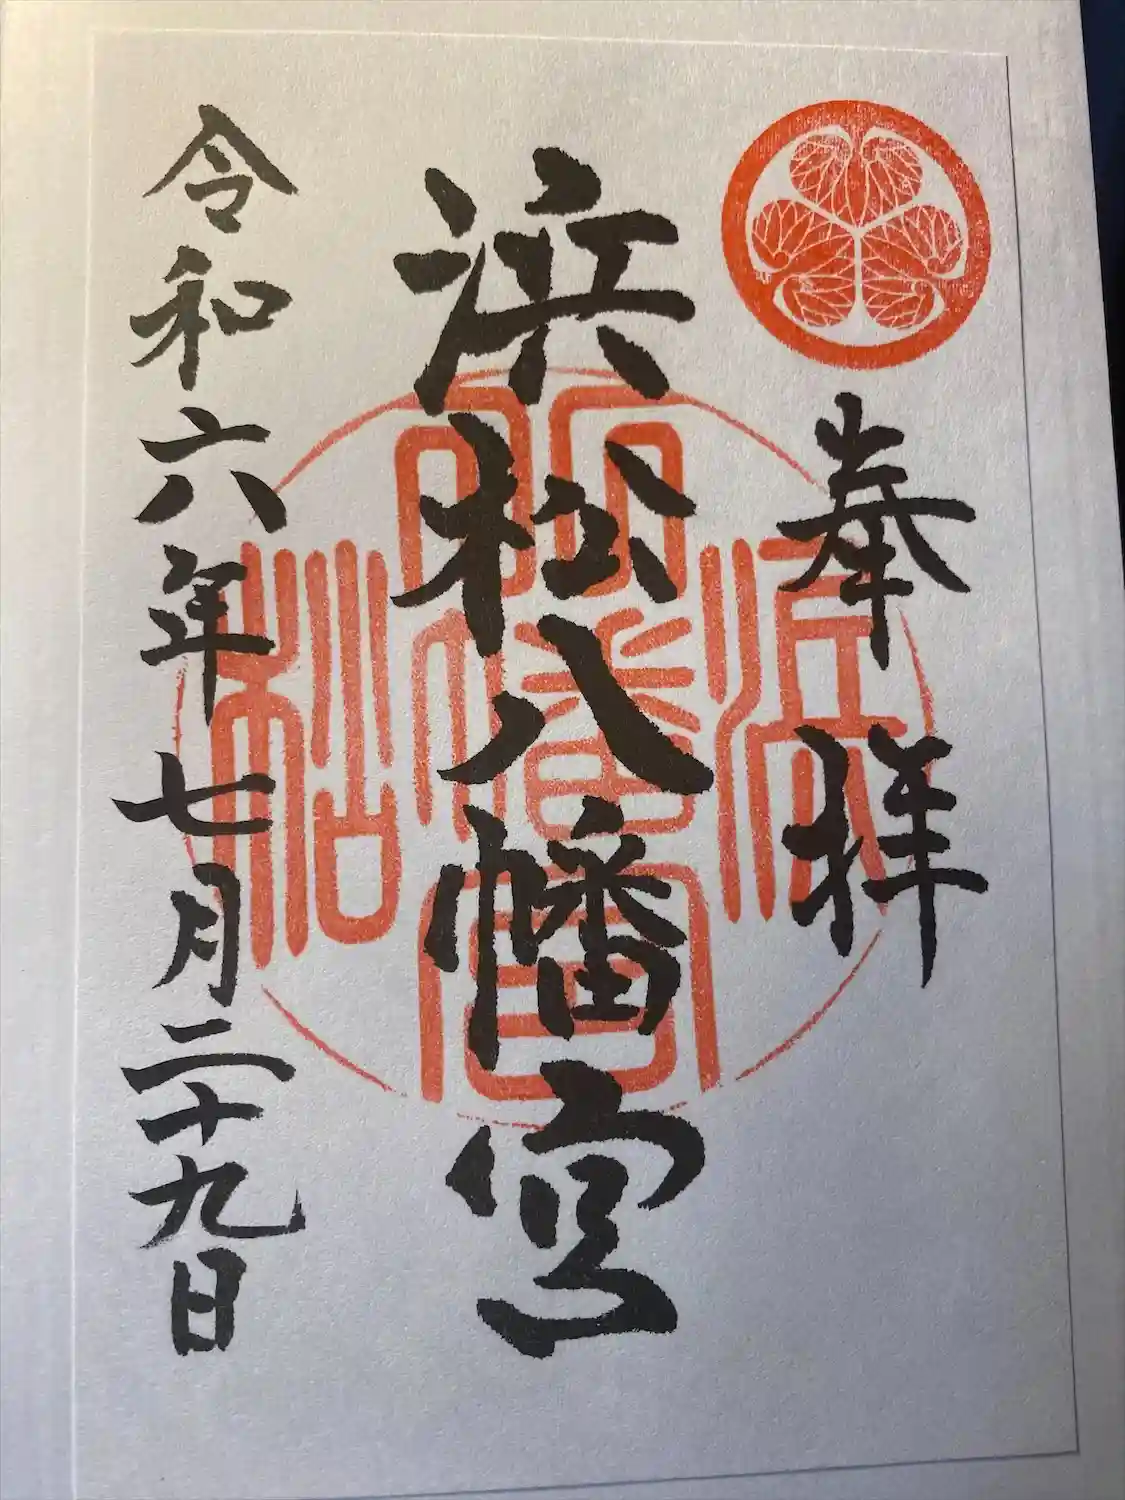 奉拝
浜松八幡宮
令和六年七月二十九日
濵松八幡宮